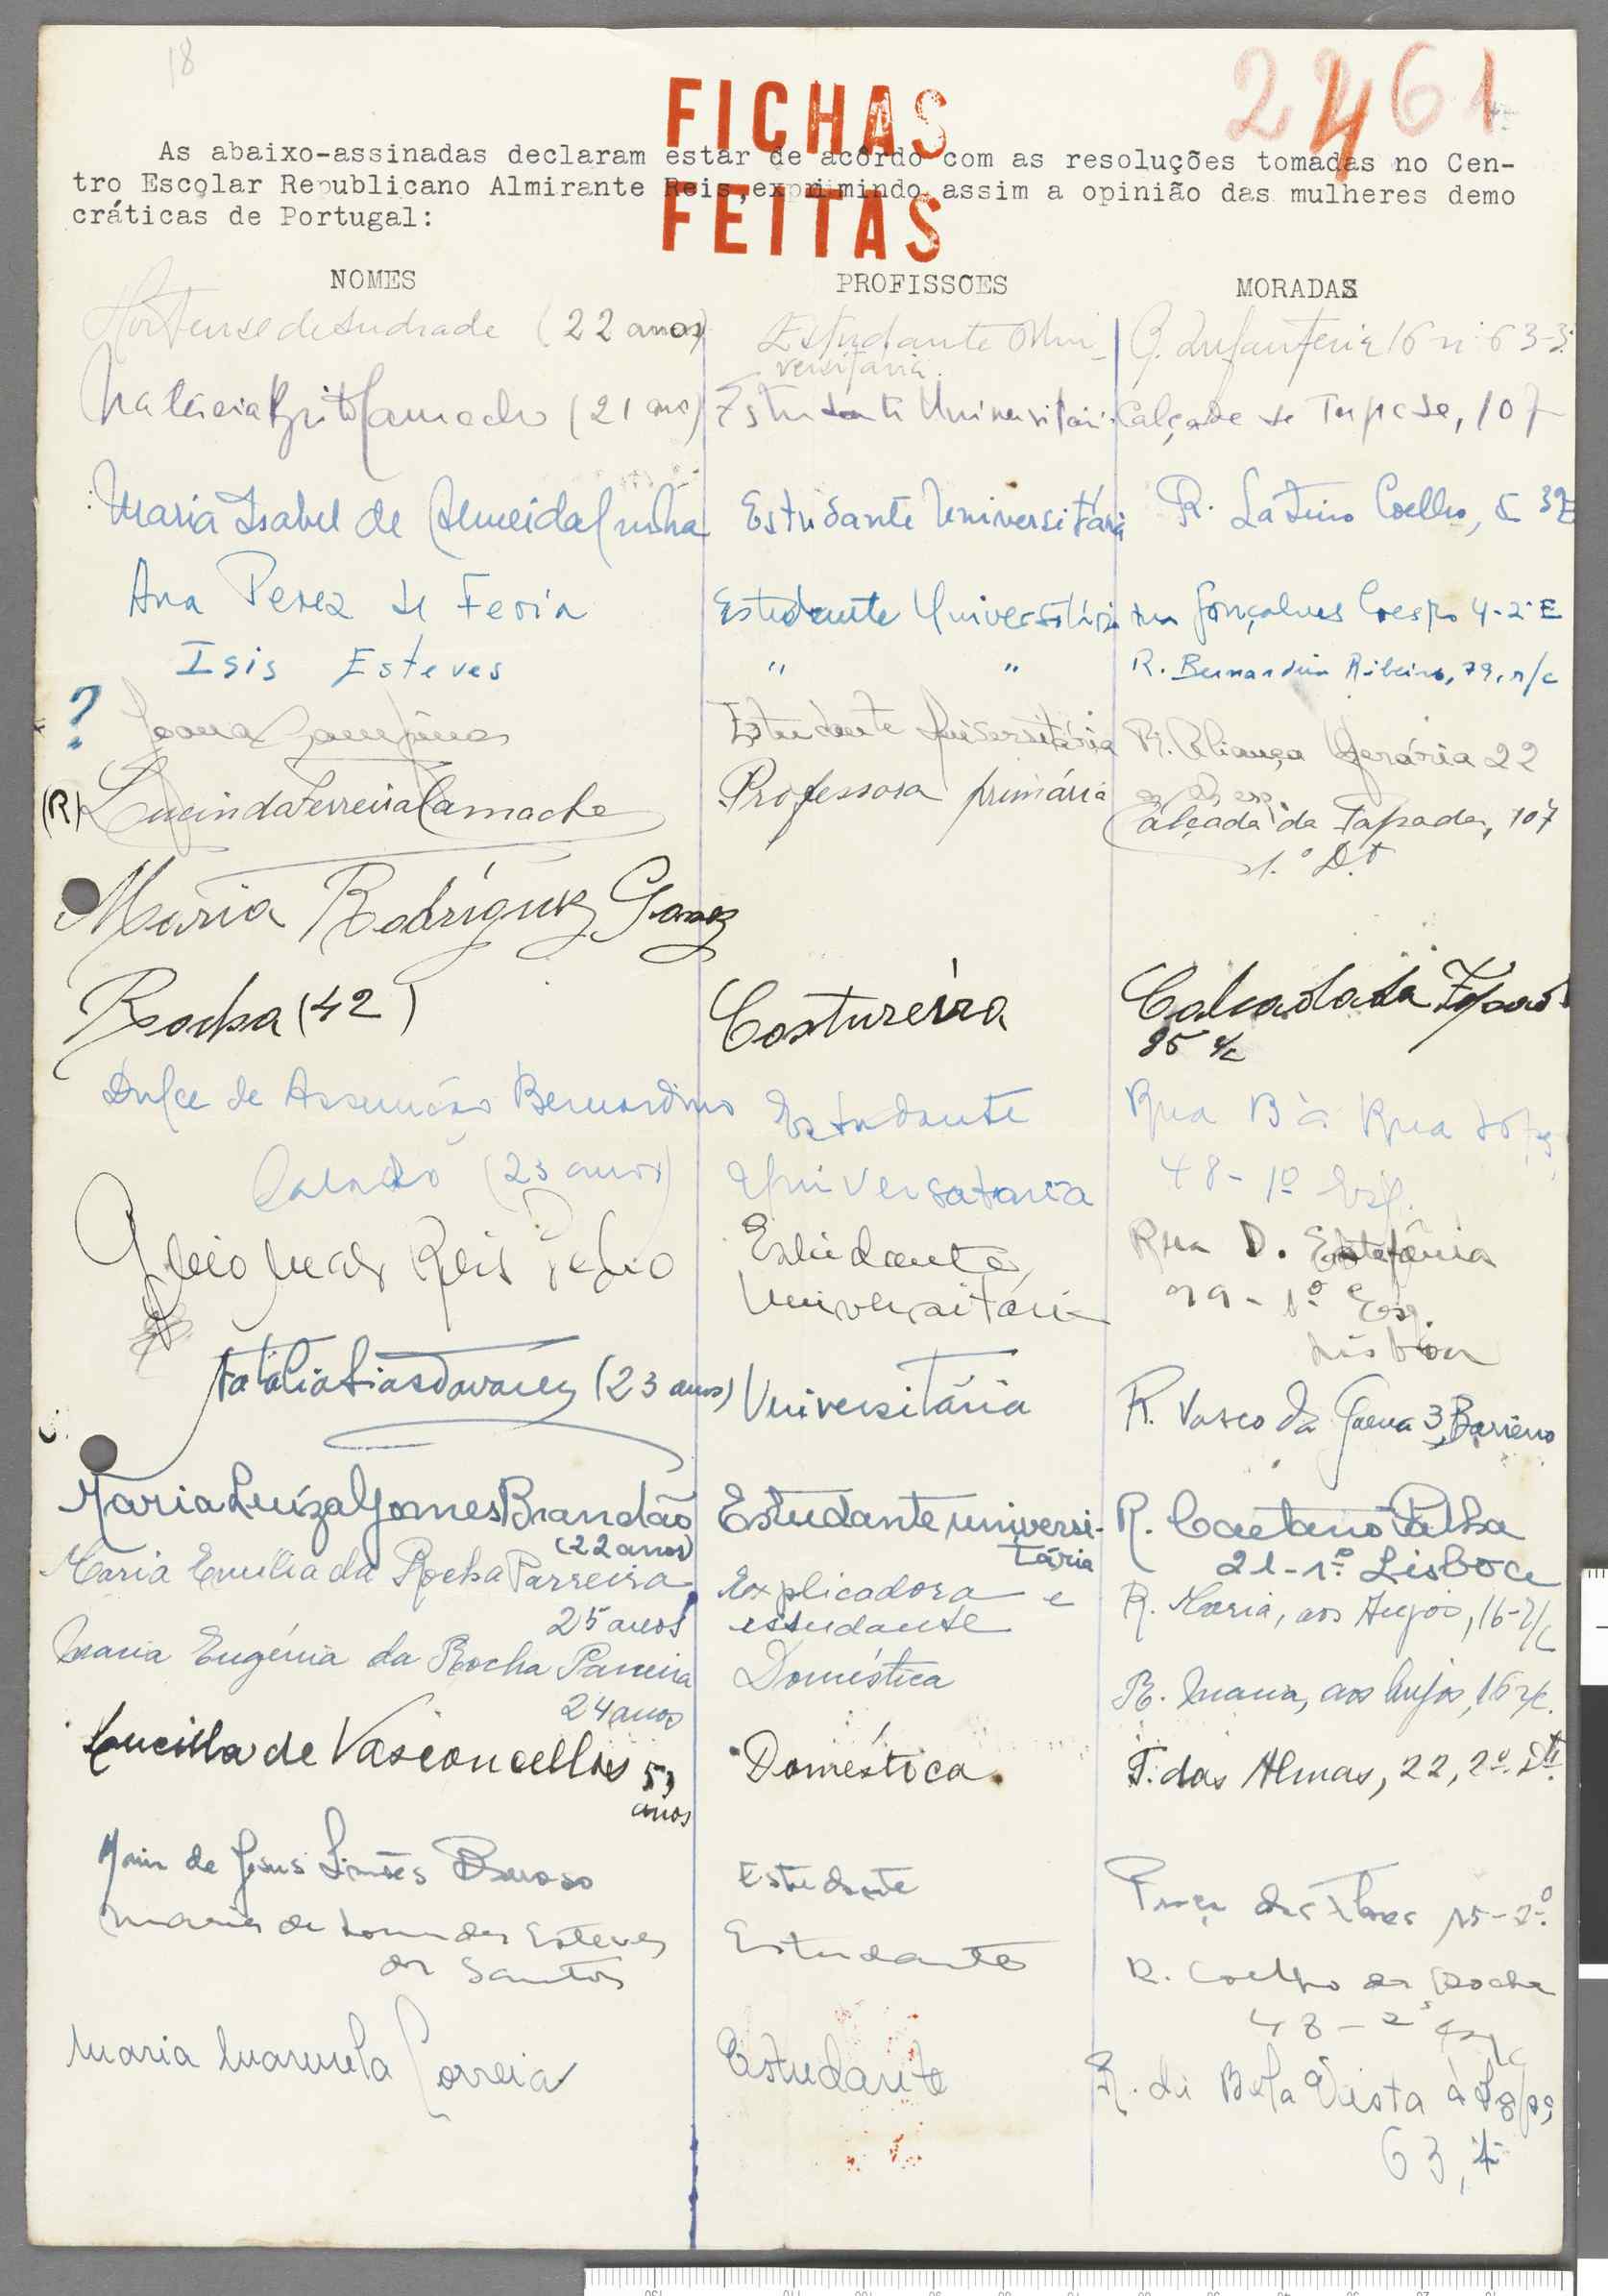 18
2461
FICHAS
FEITAS
As abaixo-assinadas declaram estar de acôrdo com as resoluções tomadas no Cen-
tro Escolar Republicano Almirante Reis, exprimindo assim a opinião das mulheres demo
cráticas de Portugal:
NOMES PROFISSOES MORADAS
Hortense de Andrade (22 anos) Estudante Uni-
versitária. Q. Infanteria 16 nº 63-3º
Natércia Brito Camacho (21 anos) Estudante Universitári Calçada da Tapada, 107
Maria Isabel de Almeida Cunha Estudante Universitária R. Latino Coelho, 3º E
Ana Perez de Feria Estudante Universitária Rua Gonçalves Crespo 4-2º E
Isis Esteves " " R. Bernardim Ribeiro, 79, r/c
? Joana Estudante Universitária R. Aliança Operária 22
(R) Lucinda Ferreira Camacho Professora primária Calçada da Tapada, 107
1.º D.t
Maria Rodriguez Gomez
Rocha (42) Costureira Calcada da Tapad
85 r/c
Dulce de Assunção Bernardino Estudante Rua B à Rua
(23 anos) Universataria 48-1º Esq.
Reis Pedro Estudante Rua D. Estefânia
Universitári 1º Esq.
Lisboa
Natália Dias Tavares (23 anos) Universitária R. Vasco da Gama 3, Barreiro
Maria Luíza Gomes Brandão Estudante universi- R. Caetano Palha
(22 anos) tária 21-1º Lisboa
Maria Emília da Rocha Parreira Explicadora e R. Maria, aos Anjos, 16-r/c
25 anos estudante
Maria Eugénia da Rocha Parreira Doméstica R. Maria, aos Anjos, 16 r/c.
24 anos
Lucilla de Vasconcellos Doméstica T. das Almas, 22, 2º Dtº
anos
Maria de Jesus Simões Barroso Estudante Praça das Flores 15-2º
Maria de Lourdes Esteves Estudante R. Coelho da Rocha
dos Santos 48-2º
Maria Manuela Correia Estudante R. da Bela Vista à Lapa,
63,